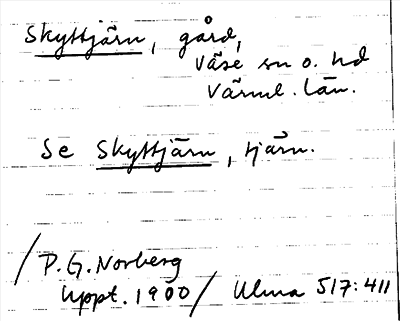 Skyttjärn, gård,
Väse sn o. hd
Värml. län.
Se Skyttjärn, tjärn.
/P.G. Norberg
uppt. 1900/ Ulma 517:411